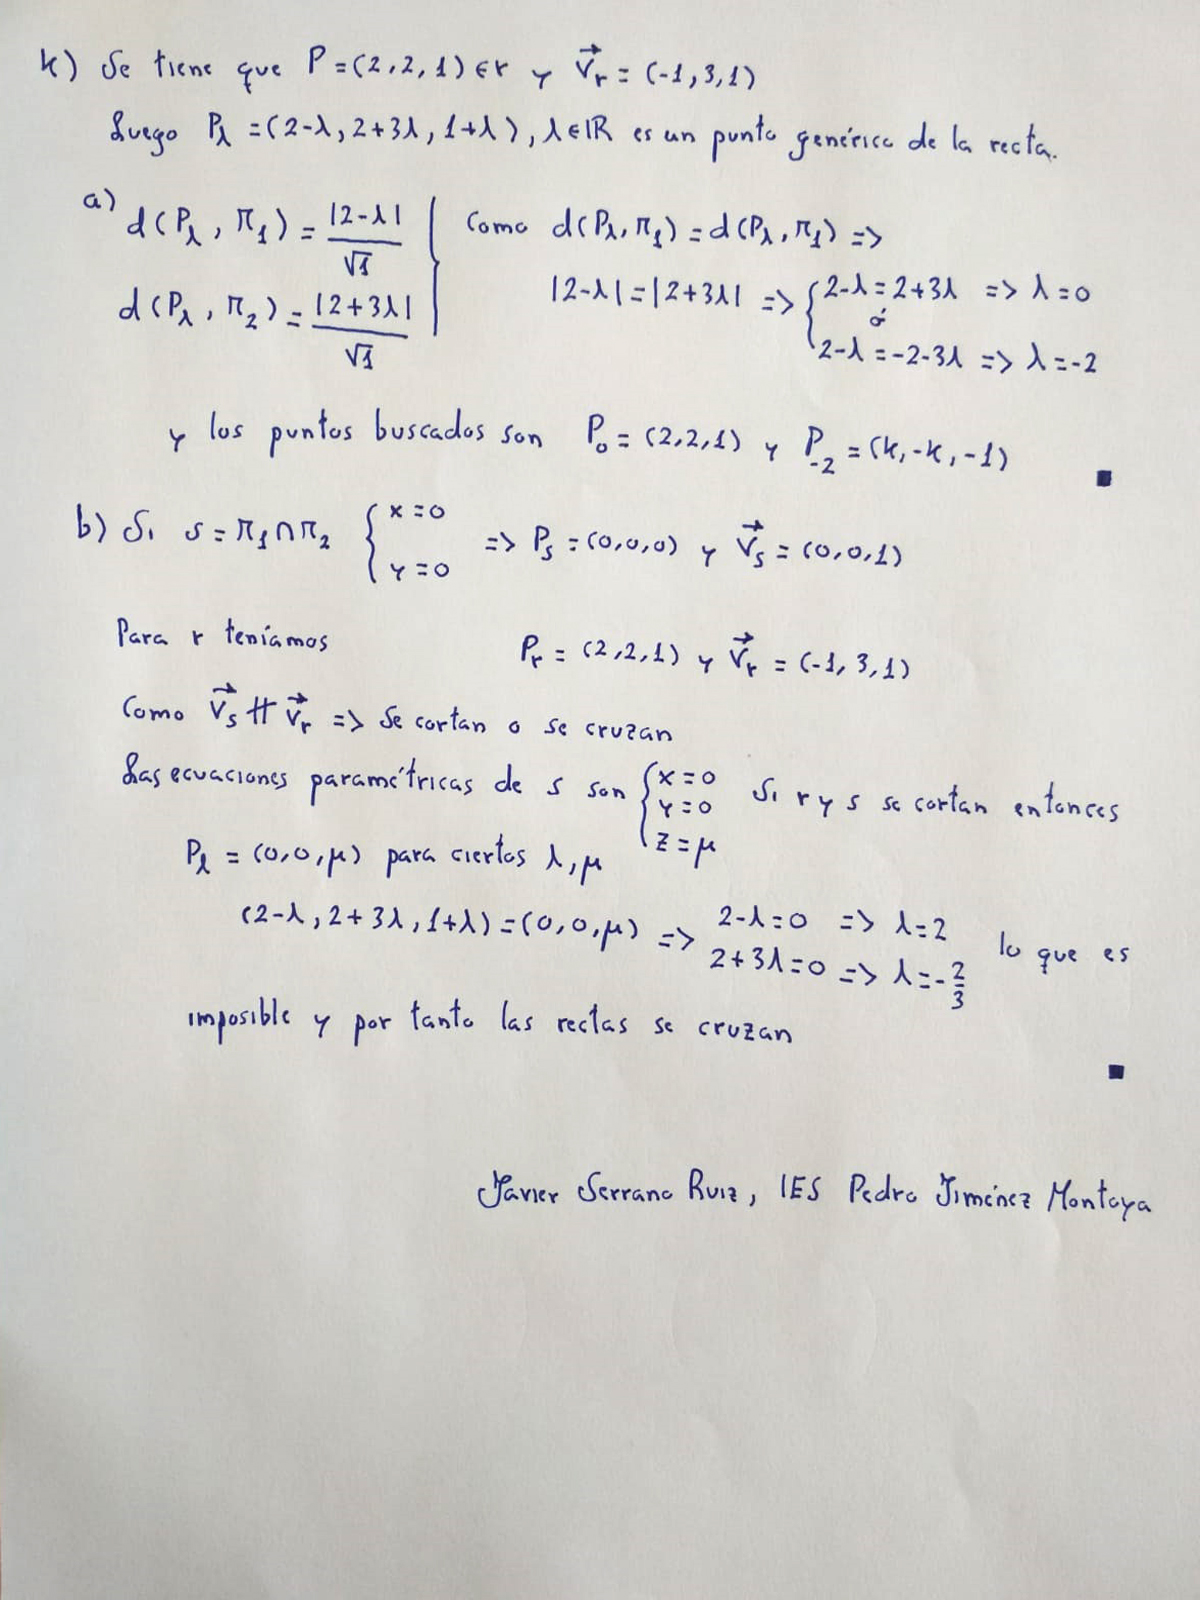 4) Se tiene que P=(2,2,1)∈r y v⃗ᵣ=(-1,3,1)
Luego P_λ=(2-λ, 2+3λ, 1+λ), λ∈ℝ es un punto genérico de la recta.
a) d(P_λ, π₁)=|2-λ|/√1 Como d(P_λ, π₁)=d(P_λ, π₁) =>
|2-λ|=|2+3λ| => { 2-λ=2+3λ => λ=0
ó
d(P_λ, π₂)=|2+3λ|/√1
2-λ=-2-3λ => λ=-2
y los puntos buscados son P₀=(2,2,1) y P₋₂=(4,-4,-1)
b) Si s=π₁∩π₂ { x=0 y=0 => Pₛ=(0,0,0) y v⃗ₛ=(0,0,1)
Para r teníamos Pᵣ=(2,2,1) y v⃗ᵣ=(-1,3,1)
Como v⃗ₛ ∦ v⃗ᵣ => Se cortan o se cruzan
Las ecuaciones paramétricas de s son { x=0 y=0 z=μ Si r y s se cortan entonces
P_λ=(0,0,μ) para ciertos λ, μ
(2-λ, 2+3λ, 1+λ)=(0,0,μ) => 2-λ=0 => λ=2
2+3λ=0 => λ=-2/3 lo que es
imposible y por tanto las rectas se cruzan
Javier Serrano Ruiz, IES Pedro Jiménez Montoya